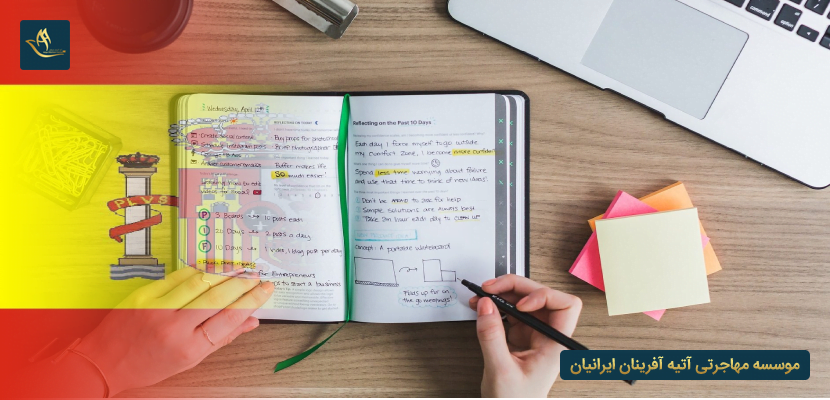 Wednesday, April 12th
Create social content
Buy props for photoshoot
Brief photographer
Answer customer emails
Buffer makes life
SO much easier!
P 3 Boards
10 posts each
I 20 Days
2 posts a day
F 10 Days
1 blog post per day
for Entrepreneurs
to start a business
PLVS
Reflecting on the Past 10 Days
Each day I force myself to go outside
my comfort zone, I become more confident
Spend less time worrying about failure
and use that time to think of new ideas!
Don't be afraid to ask for help
Simple solutions are always best
Take 1m hour each day to CLEAN UP
Concept: A portable whiteboard
Folds up for on
the go meetings!
command
option
موسسه مهاجرتی آتیه آفرینان ایرانیان